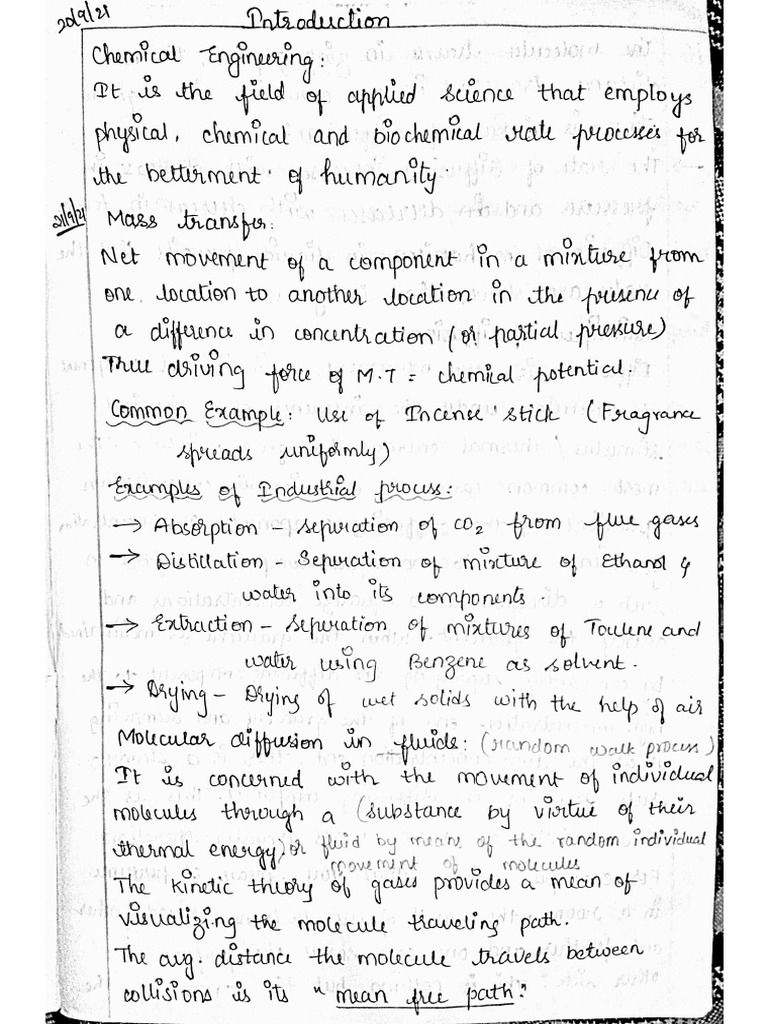 20/9/21
Introduction
Chemical Engineering:
It is the field of applied science that employs
physical, chemical and biochemical rate processes for
the betterment of humanity
21/9/21
Mass transfer:
Net movement of a component in a mixture from
one location to another location in the presence of
a difference in concentration (or partial pressure)
True driving force of M.T = chemical potential.
Common Example: Use of Incense stick (Fragrance
spreads uniformly)
Examples of Industrial process:
→ Absorption - seperation of CO2 from flue gases
→ Distillation - Seperation of mixture of Ethanol &
water into its components.
→ Extraction - seperation of mixtures of Toulene and
water using Benzene as solvent.
→ Drying - Drying of wet solids with the help of air
Molecular diffusion in fluids: (random walk process)
It is concerned with the movement of individual
molecules through a (substance by virtue of their
thermal energy) or fluid by means of the random individual
movement of molecules
The kinetic theory of gases provides a mean of
visualizing the molecule traveling path.
The avg. distance the molecule travels between
collisions is its "mean free path."